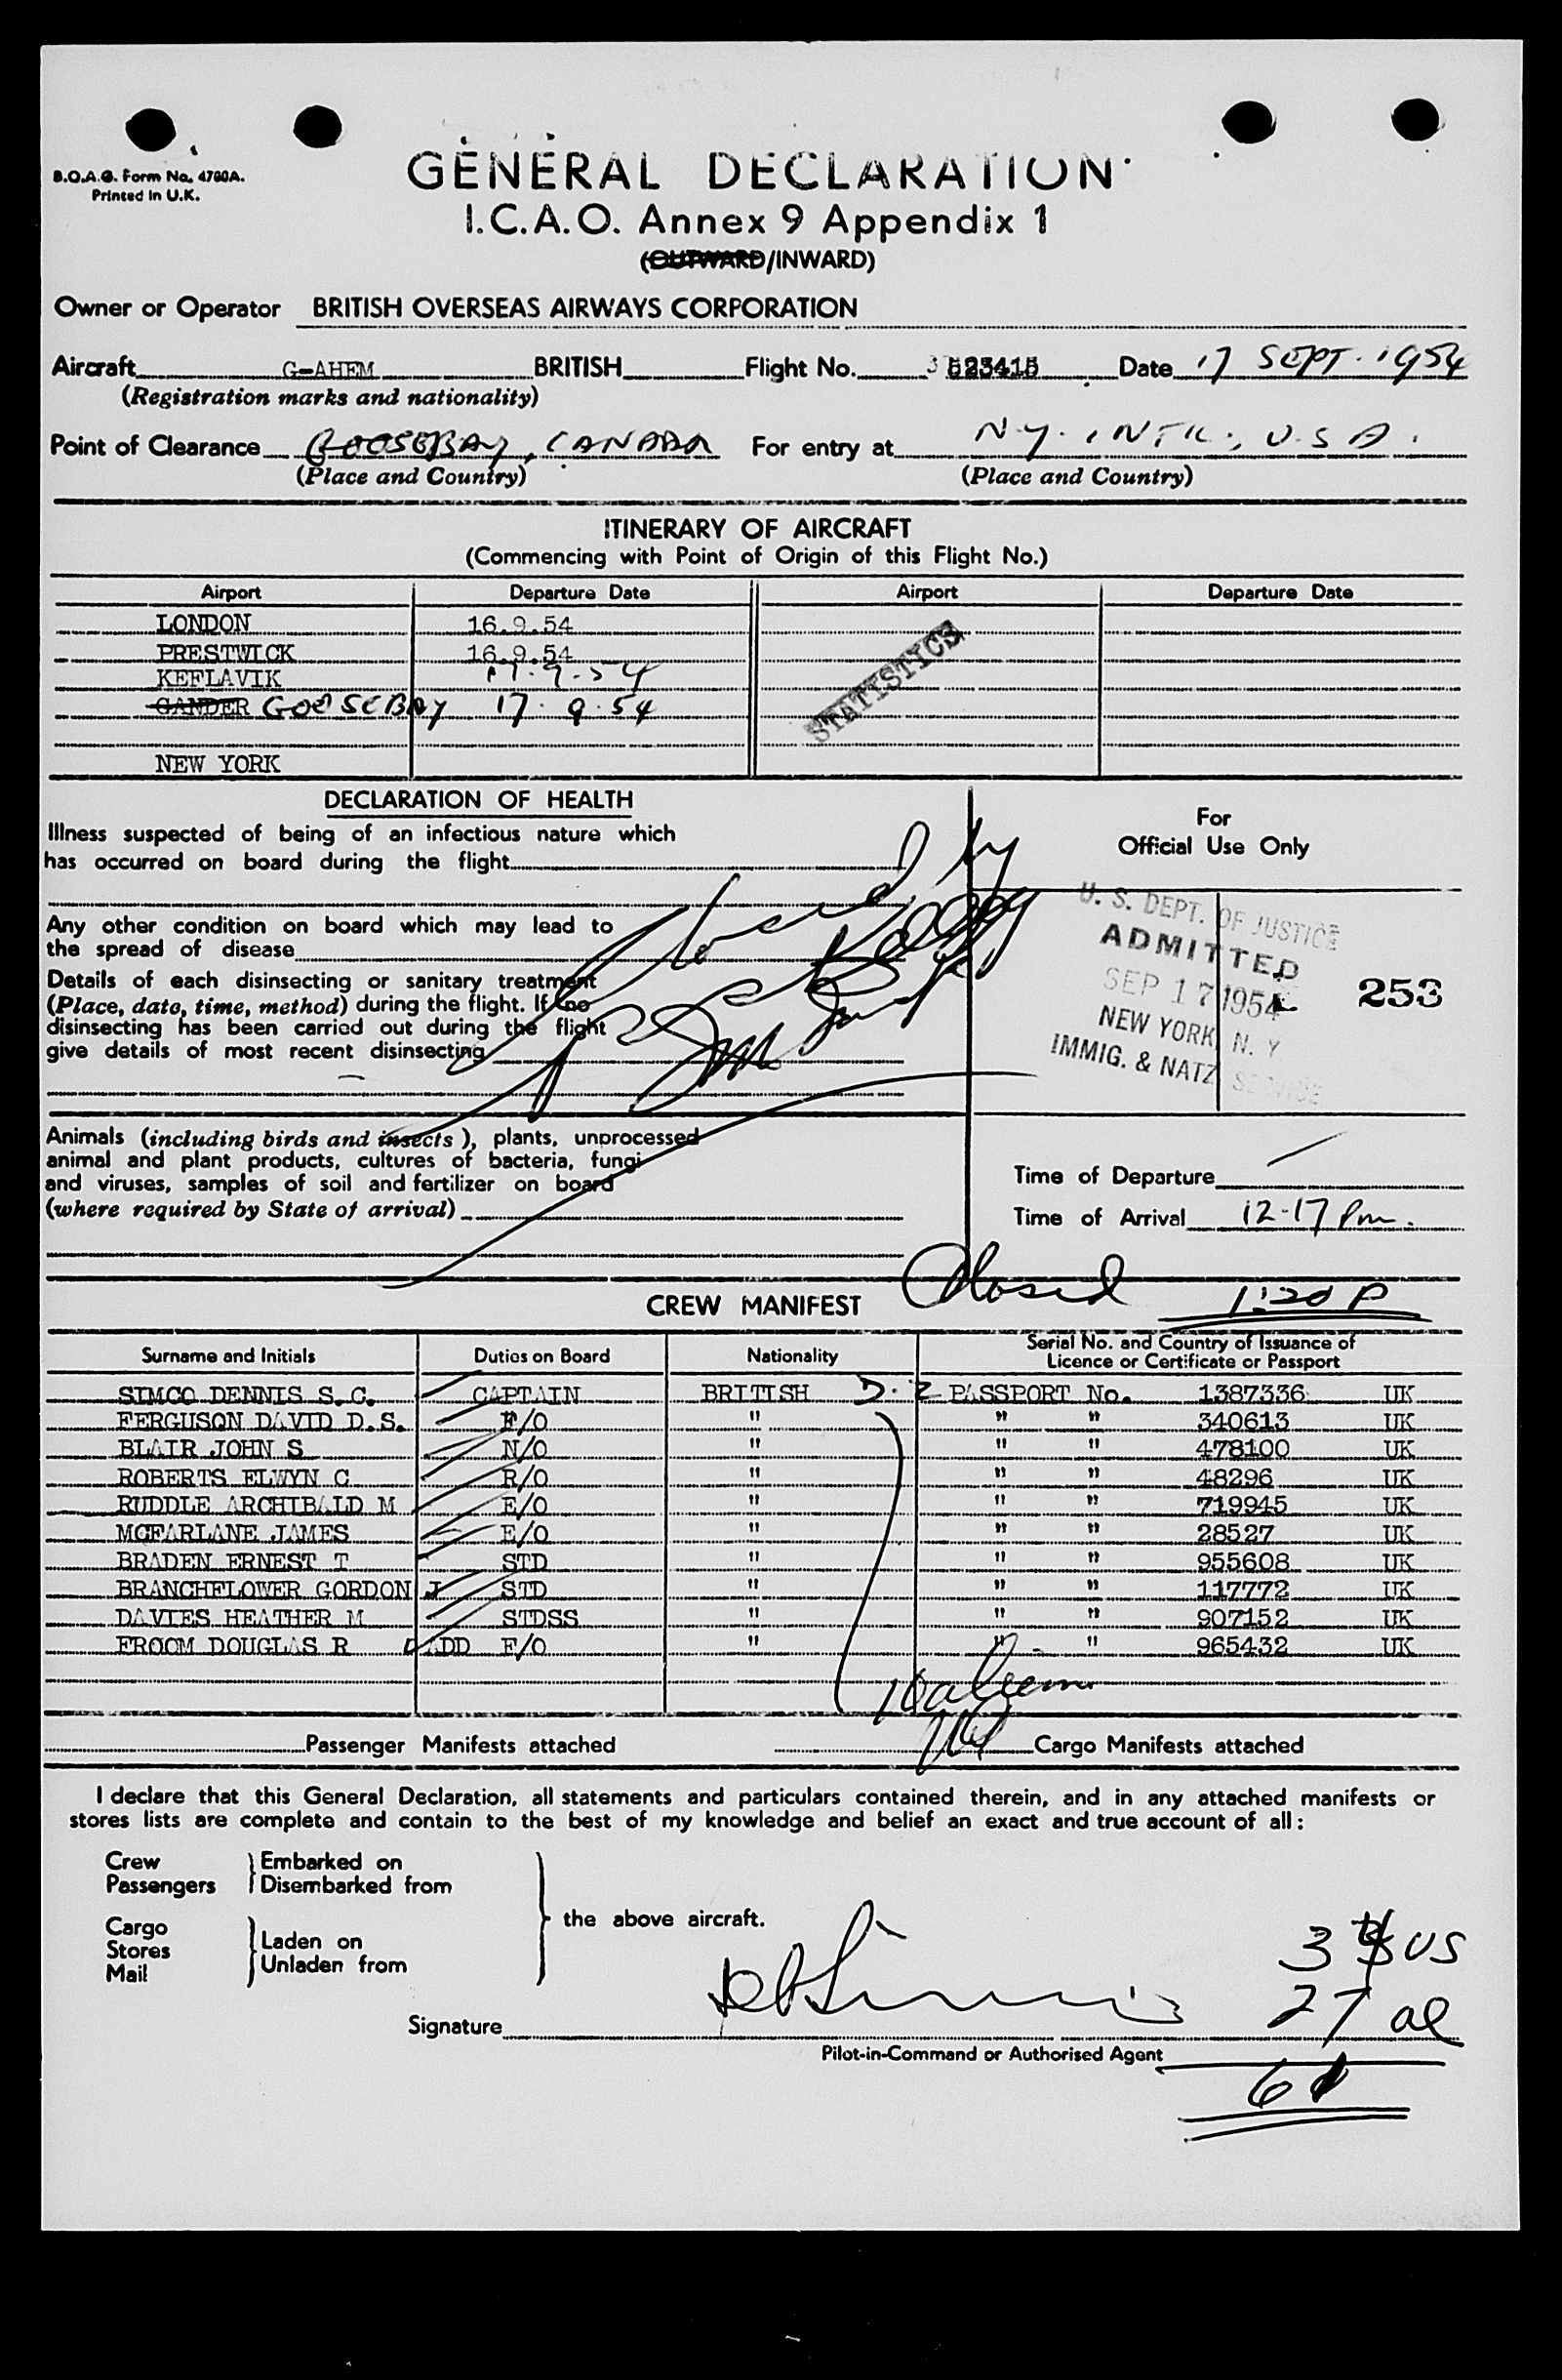 B.O.A.C. Form No. 4780A.
Printed in U.K.
GENERAL DECLARATION
I.C.A.O. Annex 9 Appendix 1
(OUTWARD/INWARD)
Owner or Operator BRITISH OVERSEAS AIRWAYS CORPORATION
Aircraft G-AHEM BRITISH Flight No. Date 17 SEPT. 1954
(Registration marks and nationality)
Point of Clearance GOOSEBAY, CANADA For entry at N.Y. INTL., U.S.A.
(Place and Country) (Place and Country)
ITINERARY OF AIRCRAFT
(Commencing with Point of Origin of this Flight No.)
Airport Departure Date Airport Departure Date
LONDON 16.9.54
PRESTWICK 16.9.54
KEFLAVIK 17.9.54
GANDER GOOSEBAY 17.9.54
NEW YORK
STATISTICS
DECLARATION OF HEALTH
Illness suspected of being of an infectious nature which
has occurred on board during the flight
Any other condition on board which may lead to
the spread of disease
Details of each disinsecting or sanitary treatment
(Place, date, time, method) during the flight. If no
disinsecting has been carried out during the flight
give details of most recent disinsecting
For
Official Use Only
U. S. DEPT. OF JUSTICE
ADMITTED
SEP 17 1954
NEW YORK, N. Y
IMMIG. & NATZ SERVICE
253
Animals (including birds and insects), plants, unprocessed
animal and plant products, cultures of bacteria, fungi
and viruses, samples of soil and fertilizer on board
(where required by State of arrival)
Time of Departure
Time of Arrival 12-17 Pm.
Closed 1:20 P
CREW MANIFEST
Surname and Initials Duties on Board Nationality Serial No. and Country of Issuance of
Licence or Certificate or Passport
SIMCO DENNIS S.C. CAPTAIN BRITISH PASSPORT No. 1387336 UK
FERGUSON DAVID D.S. F/O " " " 340613 UK
BLAIR JOHN S N/O " " " 478100 UK
ROBERTS ELWYN C R/O " " " 48296 UK
RUDDLE ARCHIBALD M E/O " " " 719945 UK
MCFARLANE JAMES E/O " " " 28527 UK
BRADEN ERNEST T STD " " " 955608 UK
BRANCHFLOWER GORDON J STD " " " 117772 UK
DAVIES HEATHER M STDSS " " " 907152 UK
FROOM DOUGLAS R ADD F/O " " " 965432 UK
Passenger Manifests attached Cargo Manifests attached
I declare that this General Declaration, all statements and particulars contained therein, and in any attached manifests or
stores lists are complete and contain to the best of my knowledge and belief an exact and true account of all:
Crew
Passengers
Embarked on
Disembarked from
Cargo
Stores
Mail
Laden on
Unladen from
the above aircraft.
Signature
Pilot-in-Command or Authorised Agent
US
27 al